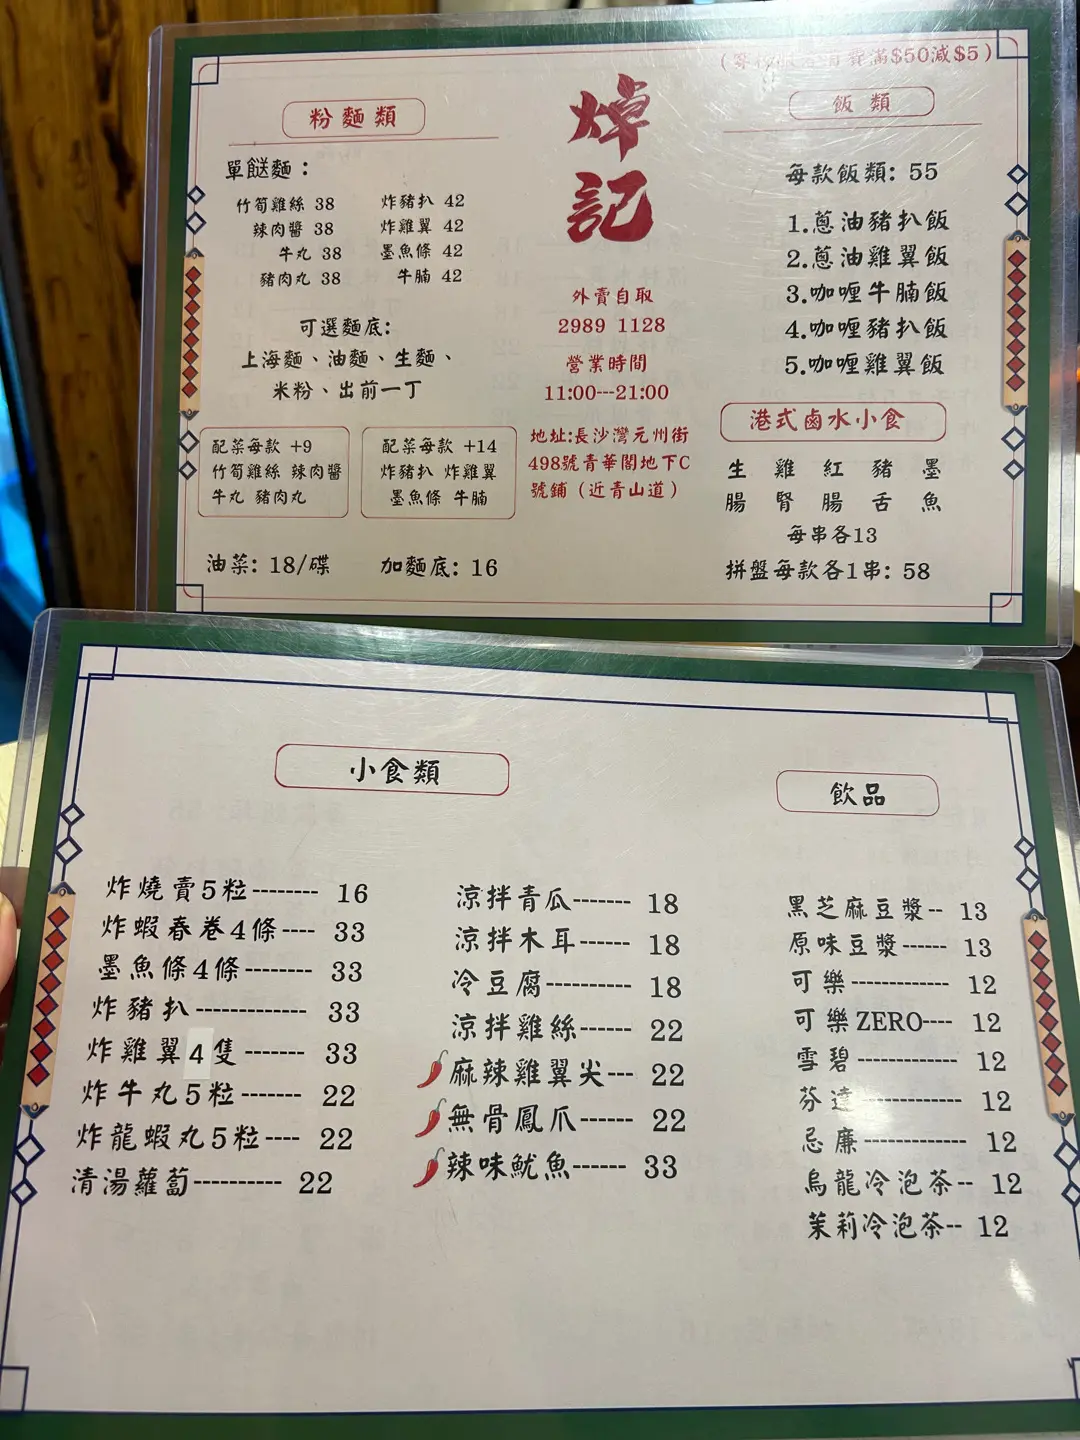 費滿$50減$5)
粉麵類
單餸麵：
竹筍雞絲 38
辣肉醬 38
牛丸 38
豬肉丸 38
炸豬扒 42
炸雞翼 42
墨魚條 42
牛腩 42
可選麵底:
上海麵、油麵、生麵、
米粉、出前一丁
配菜每款 +9
竹筍雞絲 辣肉醬
牛丸 豬肉丸
配菜每款 +14
炸豬扒 炸雞翼
墨魚條 牛腩
油菜: 18/碟
加麵底: 16
焯記
外賣自取
2989 1128
營業時間
11:00---21:00
地址:長沙灣元州街
498號青華閣地下C
號鋪（近青山道）
飯類
每款飯類: 55
1.蔥油豬扒飯
2.蔥油雞翼飯
3.咖喱牛腩飯
4.咖喱豬扒飯
5.咖喱雞翼飯
港式鹵水小食
生 雞 紅 豬 墨
腸 腎 腸 舌 魚
每串各13
拼盤每款各1串: 58
小食類
炸燒賣5粒-------- 16
炸蝦春卷4條---- 33
墨魚條4條-------- 33
炸豬扒------------- 33
炸雞翼4隻 ------- 33
炸牛丸5粒------- 22
炸龍蝦丸5粒---- 22
清湯蘿蔔---------- 22
涼拌青瓜------- 18
涼拌木耳------ 18
冷豆腐---------- 18
涼拌雞絲------ 22
麻辣雞翼尖--- 22
無骨鳳爪------ 22
辣味魷魚------ 33
飲品
黑芝麻豆漿-- 13
原味豆漿------ 13
可樂------------- 12
可樂ZERO---- 12
雪碧------------- 12
芬達------------- 12
忌廉------------- 12
烏龍冷泡茶-- 12
茉莉冷泡茶-- 12